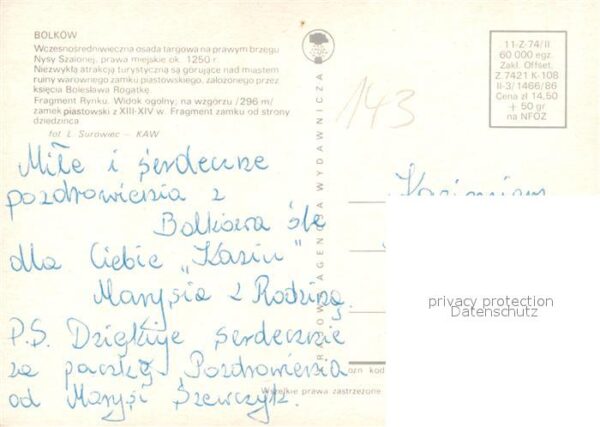 BOLKÓW
Wczesnośredniwieczna osada targowa na prawym brzegu
Nysy Szalonej, prawa miejskie ok. 1250 r.
Niezwykłą atrakcją turystyczną są górujące nad miastem
ruiny warownego zamku piastowskiego, założonego przez
księcia Bolesława Rogatkę.
Fragment Rynku. Widok ogólny, na wzgórzu /296 m/
zamek piastowski z XIII-XIV w. Fragment zamku od strony
dziedzińca
fot. L. Surowiec — KAW
11-Z-74/II
60 000 egz.
Zakł. Offset.
Z 7421 K-108
II-3/1466/86
Cena zł 14,50
+ 50 gr
na NFOZ
143
AGENCJA WYDAWNICZA
Miłe i serdeczne
pozdrowienia z
Bolkowa śle
dla Ciebie „Kaziu"
Marysia z Rodziną.
P.S. Dziękuje serdecznie
za paczkę Pozdrowienia
od Marysi Szewczyk.
Kazimierz
privacy protection
Datenschutz
ozn kod
Wszelkie prawa zastrzeżone